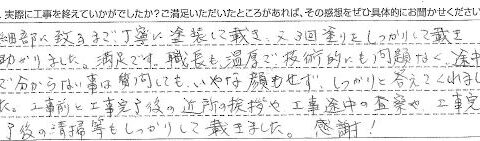 実際に工事を終えていかがでしたか?ご満足いただいたところがあれば、その感想をぜひ具体的にお聞かせください
細部に致るまで丁寧に塗装して戴き、又3回塗りもしっかりして戴き
助かりました。満足です。職長も温厚で技術的にも問題なく、途中
で分からない事は質問しても、いやな顔もせず、しっかりと答えてくれまし
た。工事前と工事完了後の近所の挨拶や工事途中の査察や、工事完
了後の清掃等もしっかりして戴きました。感謝!